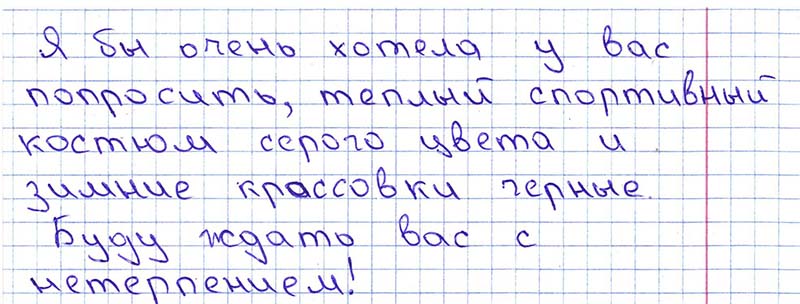 Я бы очень хотела у вас
попросить, теплый спортивный
костюм серого цвета и
зимние крассовки черные.
Буду ждать вас с
нетерпением!